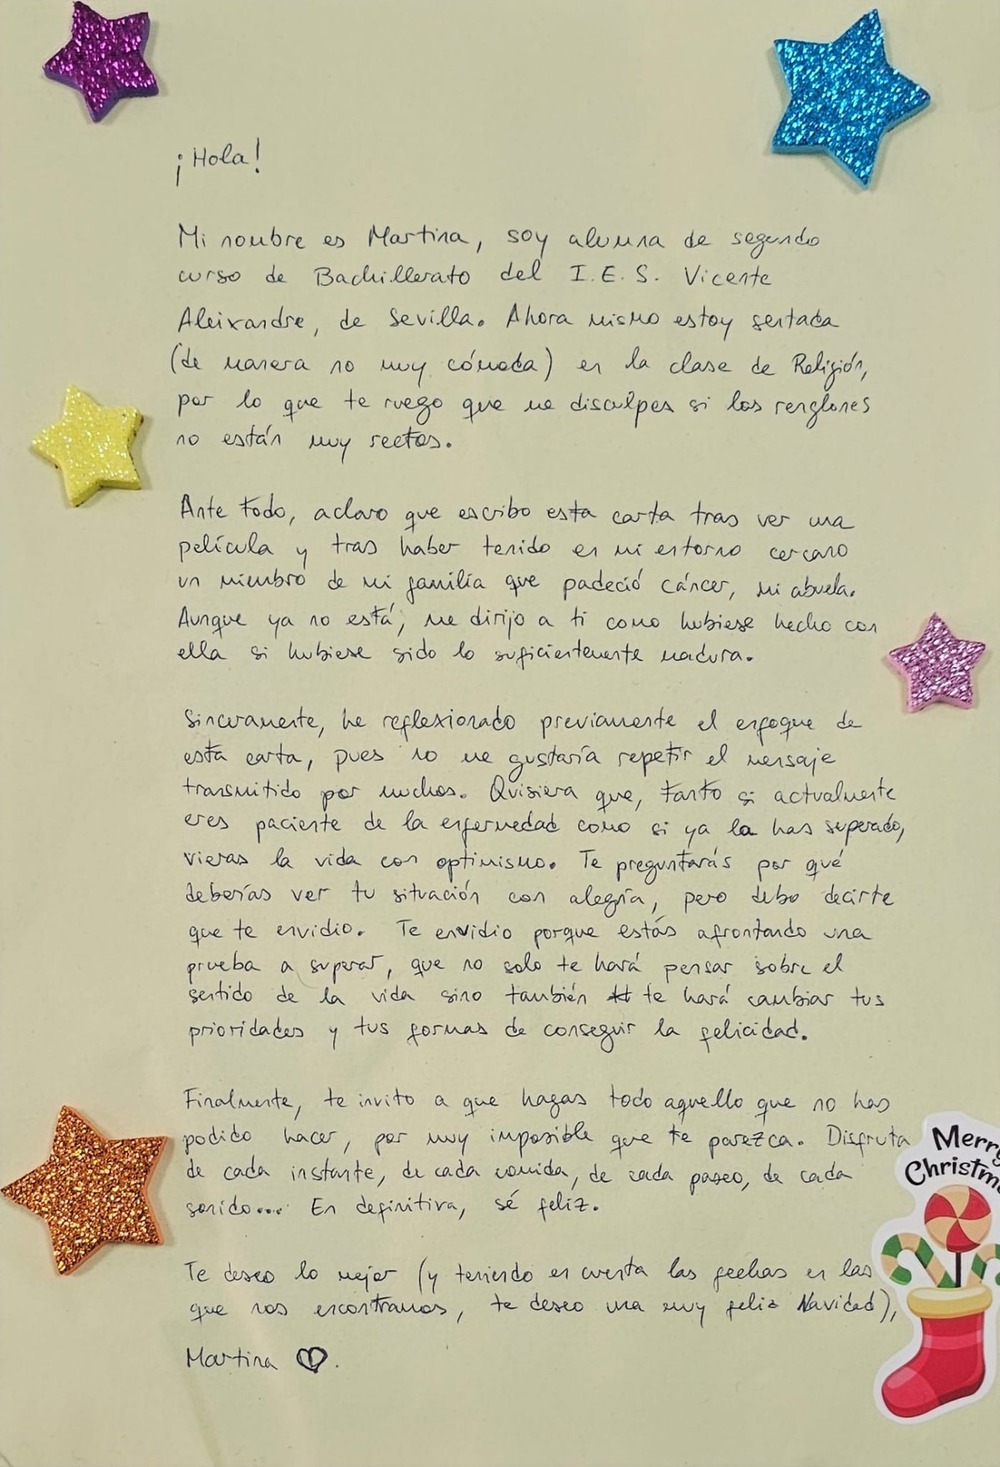 ¡Hola!
Mi nombre es Martina, soy alumna de segundo
curso de Bachillerato del I.E.S. Vicente
Aleixandre, de Sevilla. Ahora mismo estoy sentada
(de manera no muy cómoda) en la clase de Religión,
por lo que te ruego que me disculpes si los renglones
no están muy rectos.
Ante todo, aclaro que escribo esta carta tras ver una
película y tras haber tenido en mi entorno cercano
un miembro de mi familia que padeció cáncer, mi abuela.
Aunque ya no está, me dirijo a ti como hubiese hecho con
ella si hubiese sido lo suficientemente madura.
Sinceramente, he reflexionado previamente el enfoque de
esta carta, pues no me gustaría repetir el mensaje
transmitido por muchos. Quisiera que, tanto si actualmente
eres paciente de la enfermedad como si ya la has superado,
vieras la vida con optimismo. Te preguntarás por qué
deberías ver tu situación con alegría, pero debo decirte
que te envidio. Te envidio porque estás afrontando una
prueba a superar, que no solo te hará pensar sobre el
sentido de la vida sino también te hará cambiar tus
prioridades y tus formas de conseguir la felicidad.
Finalmente, te invito a que hagas todo aquello que no has
podido hacer, por muy imposible que te parezca. Disfruta
de cada instante, de cada comida, de cada paseo, de cada
sonido... En definitiva, sé feliz.
Te deseo lo mejor (y teniendo en cuenta las fechas en las
que nos encontramos, te deseo una muy feliz Navidad),
Martina
Merry
Christm